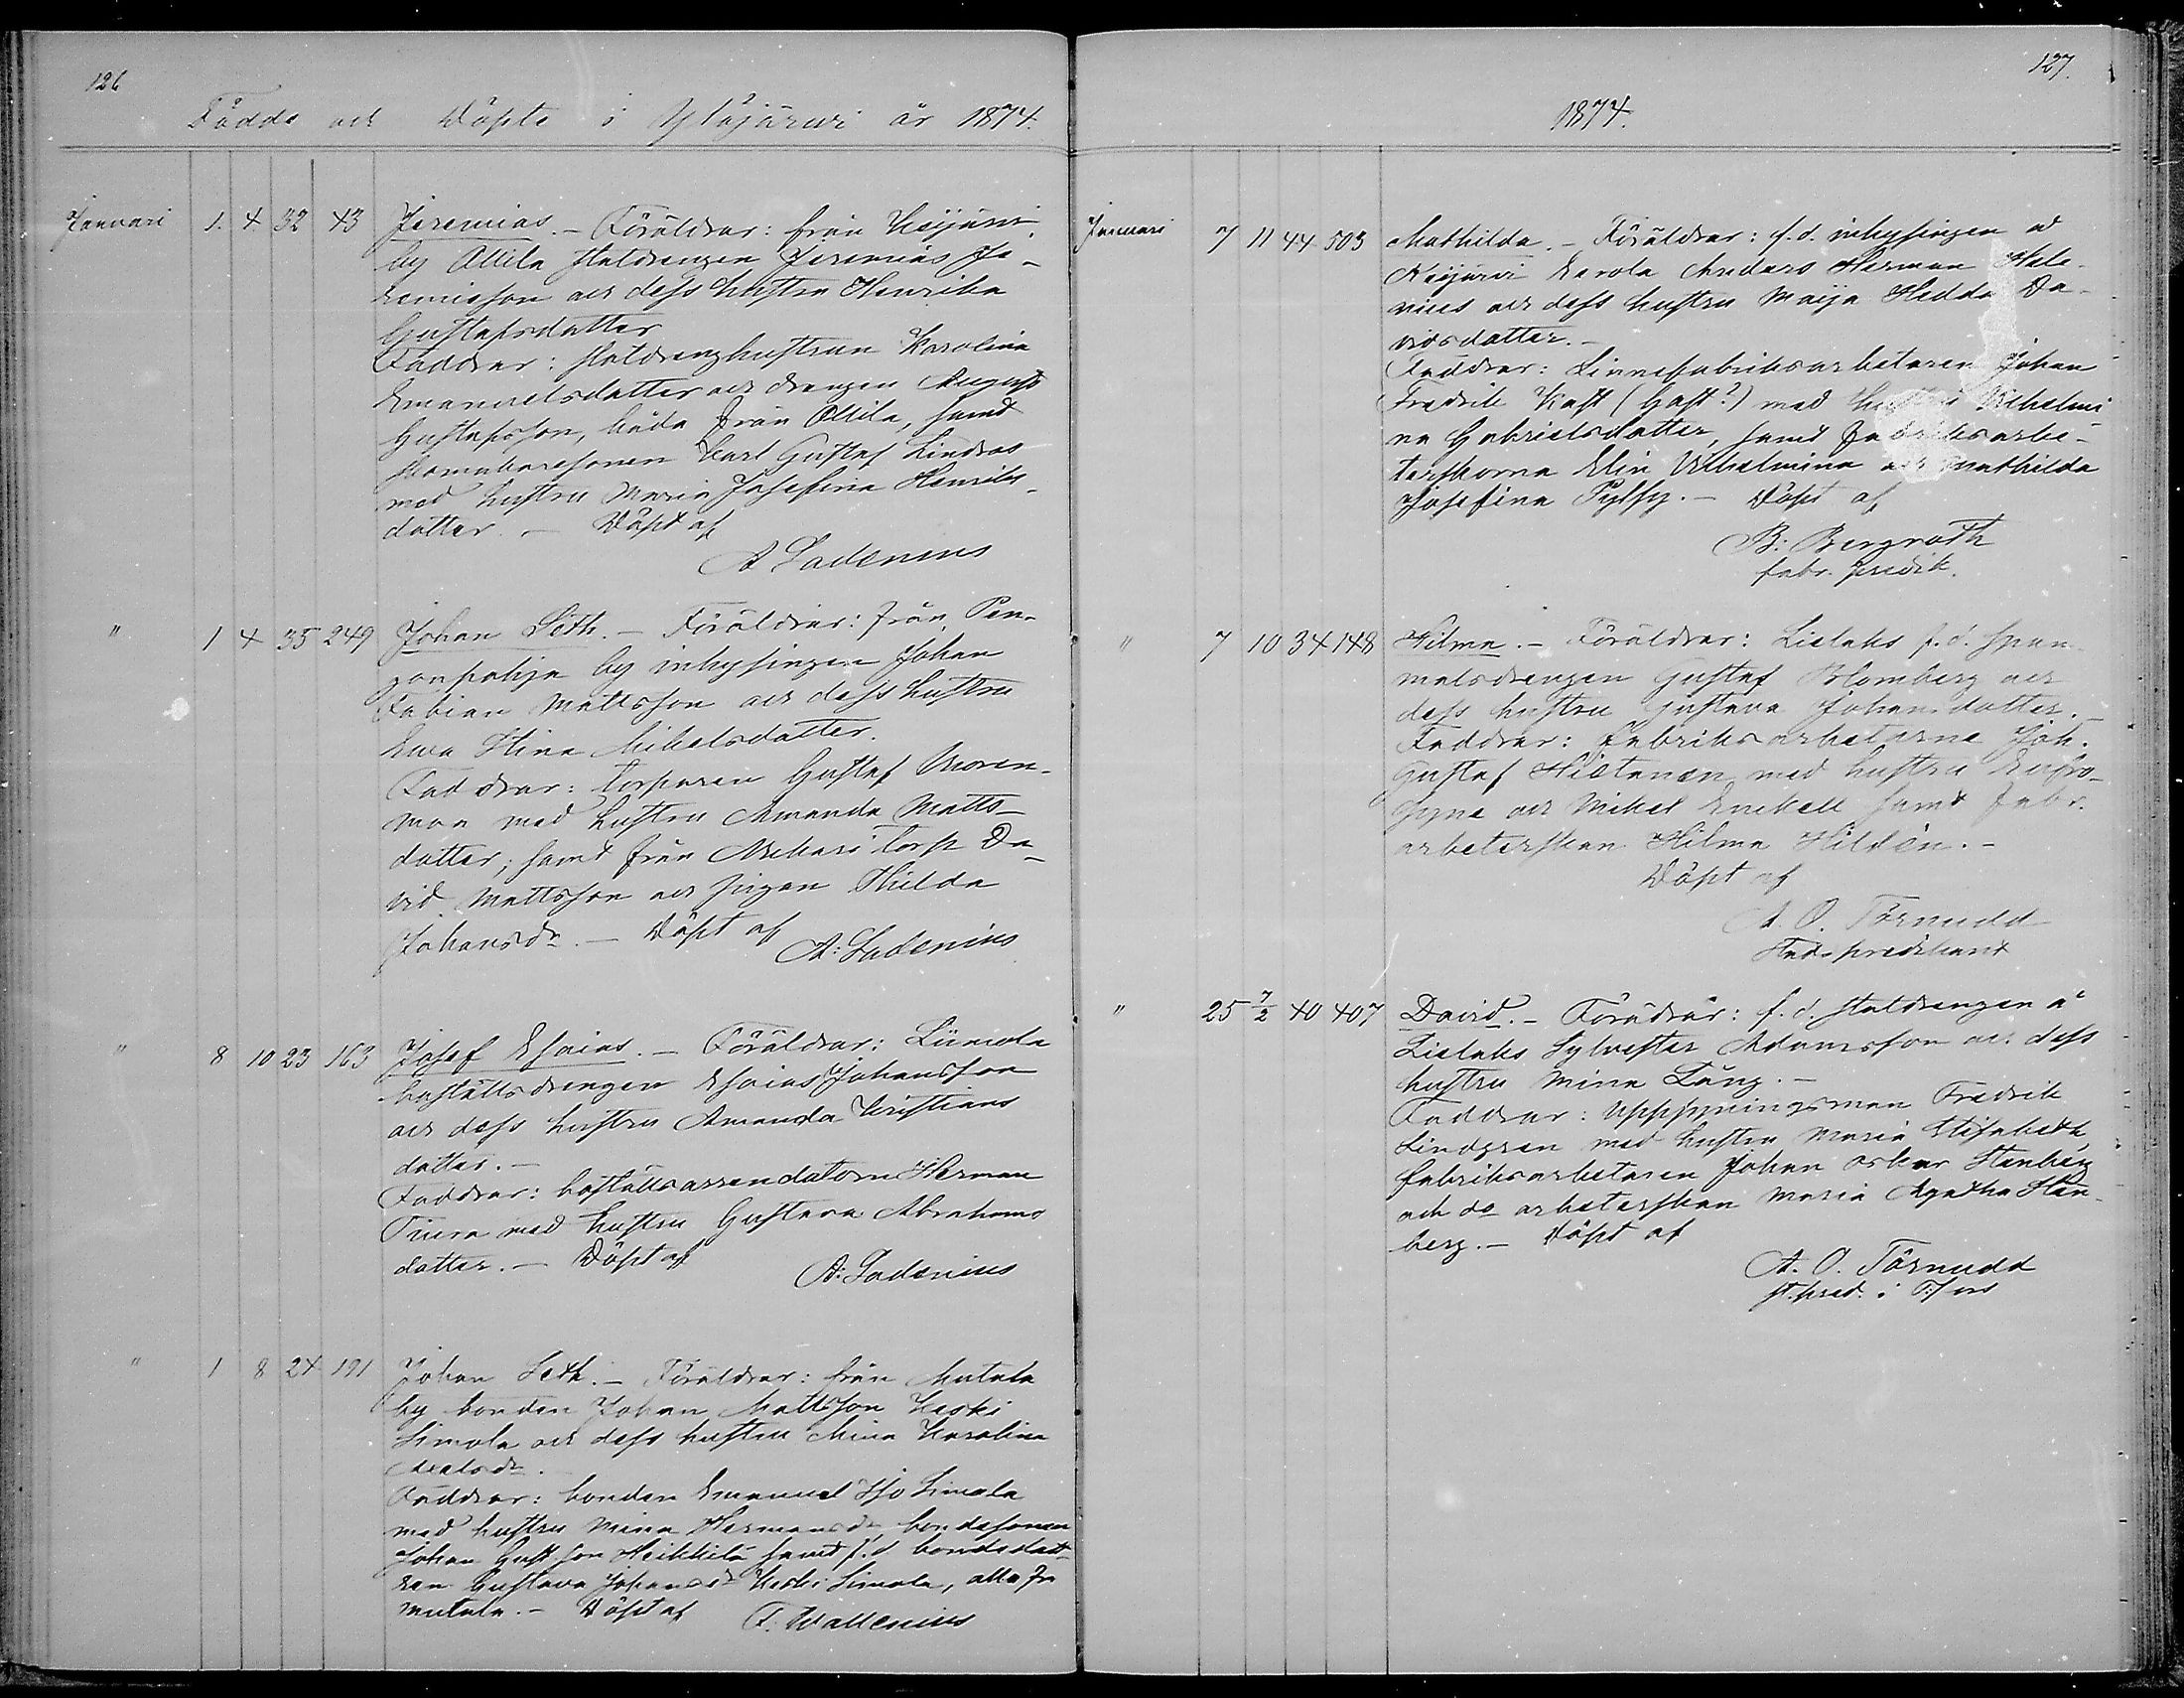 126
Födde och Döpte i Ylöjärwi år 1874.
Januari 1. 4 32 43 Jeremias. - Föräldrar: från Keijärwi
by Ollila statdrengen Jeremias Je-
remiasson och dess hustru Henrika
Gustafsdotter
Faddrar: statdrenghustrun Karolina
Emanuelsdotter och drengen August
Gustafsson, båda från Ollila, samt
Karl Gustaf Lindroos
med hustru Maria Josefina Henriks-
dotter. - Döpt af
A Ladenius
" 1 4 35 249 Johan Seth. - Föräldrar: från Pen-
gonpohja by inhysingen Johan
Fabian Mattsson och dess hustru
Ewa Stina Mikelsdotter.
Faddrar: torparen Gustaf Moren-
maa med hustru Amanda Matts-
dotter; samt från torp Da-
vid Mattsson och pigan Hulda
Johansdr. - Döpt af
A: Ladenius
" 8 10 23 163 Josef Esaias. - Föräldrar: Liimola
boställsdrengen Esaias Johansson
och dess hustru Amanda Kristians
dotter. -
Faddrar: boställsarrendatorn Herman
Tiura med hustru Gustava Abrahams
dotter. - Döpt af
A: Ladenius
" 1 8 24 191 Johan Seth. - Föräldrar: från Mutala
by bonden Johan Mattsson Keski
Simola och dess hustru Mina Karolina
Faddrar: bonden Emanuel Iso Simola
med hustru Mina Hermansdr, bondesonen
Johan Gustsson Heikkilä samt f.d. bondedott-
ren Gustava Johansdr Keski Simola, alla fr
Mutala. - Döpt af F. Wallenius
127.
1874.
Januari 7 11 44 503 Mathilda. - Föräldrar: f.d. inhysingen
Keijärwi Eerola Anders Herman Hele-
nius och dess hustru Maija Hedda Da-
vidsdotter. -
Faddrar: Linnefabriksarbetaren Johan
Fredrik Kast (Gast?) med hustru Vilhelmi
na Gabrielsdotter, samt fabriksarbe-
terskorna Elin Vilhelmina och Mathilda
Josefina Pylsy. - Döpt af
B: Bergroth
fabr. predik.
" 7 10 34 148 Hilma. - Föräldrar: Lielaks f.d. span-
malsdrengen Gustaf Blomberg och
dess hustru Gustava Johansdotter. -
Faddrar: Fabriksarbetarne Joh.
Gustaf Hietanen med hustru Eufro-
syne och Mikel Enckell samt fabr.
arbeterskan Hilma Hildén. -
Döpt af
A. O. Törnudd
Stadspredikant
" 25 7/2 40 407 David. - Föräldrar: f.d. statdrengen å
Lielaks Sylvester Adamsson och dess
hustru Mina Lång. -
Faddrar: Uppsyningsman Fredrik
Lindgren med hustru Maria Elisabeth,
fabriksarbetaren Johan Oskar Stenberg
och do arbeterskan Maria Agatha Sten-
berg. - Döpt af
A. O. Törnudd
st.pred. i T:fors